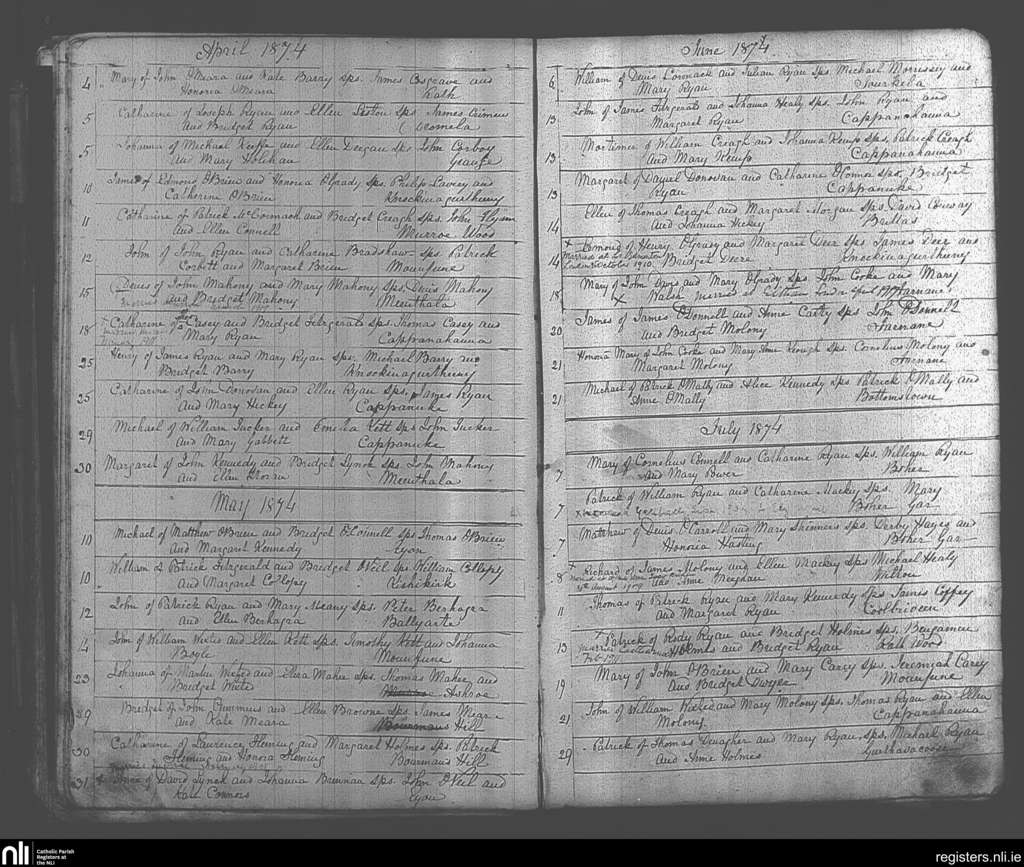 April 1874
4 Mary of John OMeara and Kate Barry sps. James Cosgrave and
Honoria OMeara Rath
5 Catharine of Joseph Ryan and Ellen sps James
and Bridget Ryan
5 Johanna of Michael Keeffe and Ellen Deegan sps John Corboy
and Mary Holihan Grange
10 James of Edmond OBrien and Honoria OGrady sps. Philip Lavery and
Catherine OBrien Knockinagurtheeny
11 Catharine of Patrick McCormack and Bridget Creagh sps. John Flynn
and Ellen Connell Murroe Wood
12 John of John Ryan and Catharine Bradshaw sps Patrick
Corbett and Margaret Brien Mounfune
15 Denis of John Mahony and Mary Mahony sps. Denis Mahony
and Bridget Mahony Meenthala
18 Catharine of Casey and Bridget Fitzgerald sps. Thomas Casey and
Mary Ryan Cappanahanna
25 Henry of James Ryan and Mary Ryan sps. Michael Barry and
Bridget Barry Knockinagurtheeny
25 Catharine of John Donovan and Ellen Ryan sps. James Ryan
and Mary Hickey Cappanuke
29 Michael of William and Kett sps John Tucker
and Mary Gabbett Cappanuke
30 Margaret of John Kennedy and Bridget Lynch sps. John Mahony
and Ellen Meenthala
May 1874
10 Michael of Matthew OBrien and Bridget OConnell sps Thomas OBrien
and Margaret Kennedy Eyon
10 William of Patrick Fitzgerald and Bridget ONeil sps William Collopy
and Margaret Collopy Lishekirk
12 John of Patrick Ryan and Mary Meany sps. Peter Berhagra
and Ellen Berhagra Ballyarte
14 John of William and Ellen Kett sps. Timothy Kett and Johanna
Boyle Mounfune
23 Johanna of Martin and Maher sps. Thomas Maher and
Bridget Ashroe
29 Bridget of John Cummins and Ellen Browne sps James Meara
and Kate Meara Hill
30 Catharine of Laurence Fleming and Margaret Holmes sps. Patrick
Fleming and Honora Fleming Bourmans Hill
31 of David Lynch and Johanna Brennan sps. John ONeil and
Kate Connors Eyon
June 1874
6 William of Denis Cormack and Julian Ryan sps Michael Morrissey and
Mary Ryan
13 John of James Fitzgerald and Johanna Healy sps. John Ryan and
Margaret Ryan Cappanahanna
13 Mortimer of William Creagh and Johanna Kemp sps. Patrick Creagh
and Mary Kemp Cappanahanna
13 Margaret of Daniel Donovan and Catharine OConnor sps. Bridget
Ryan Cappanuke
14 Ellen of Thomas Creagh and Margaret Morgan sps. David
and Johanna Hickey Brittas
14 + Edmond of Henry OGrady and Margaret Deer sps. James Deer and
Bridget Deere Knockinagurtheeny
October 1910
18 Mary of John and Mary OGrady sps John Cooke and Mary
x Walsh married at Farnane
20 James of James ODonnell and Anne Carty sps John ODonnell
and Bridget Molony Farnane
21 Honoria Mary of John Cooke and Mary Anne Keough sps. Cornelius Molony and
Margaret Molony Farnane
21 Michael of Patrick OMally and Alice Kennedy sps Patrick OMally and
Anne OMally Bottomstown
July 1874
7 Mary of Cornelius Connell and Catharine Ryan sps. William Ryan
and Mary Power Boher
7 Patrick of William Ryan and Catharine Mackey sps. Mary
Boher Gar
7 Matthew of Denis OCarroll and Mary Skinners sps. Derby Hayes and
Honoria Hasting Boher Gar
8 + Richard of James Molony and Ellen Mackey sps Michael Healy
and Anne Meighan Wilton
August 1909
11 Thomas of Patrick Ryan and Mary Kennedy sps James Coffey
and Margaret Ryan Coolbrioeen
13 + Patrick of Rody Ryan and Bridget Holmes sps. Benjamin
Holmes and Bridget Ryan Rath Wood
19 Mary of John OBrien and Mary Carey sps. Jeremiah Carey
and Bridget Dwyer Mounfune
21 John of William and Mary Molony sps. Thomas Ryan and Ellen
Molony Cappanahanna
29 Patrick of Thomas Denagher and Mary Ryan sps. Michael Ryan
and Anne Holmes
nli Catholic Parish
Registers at
the NLI
registers.nli.ie